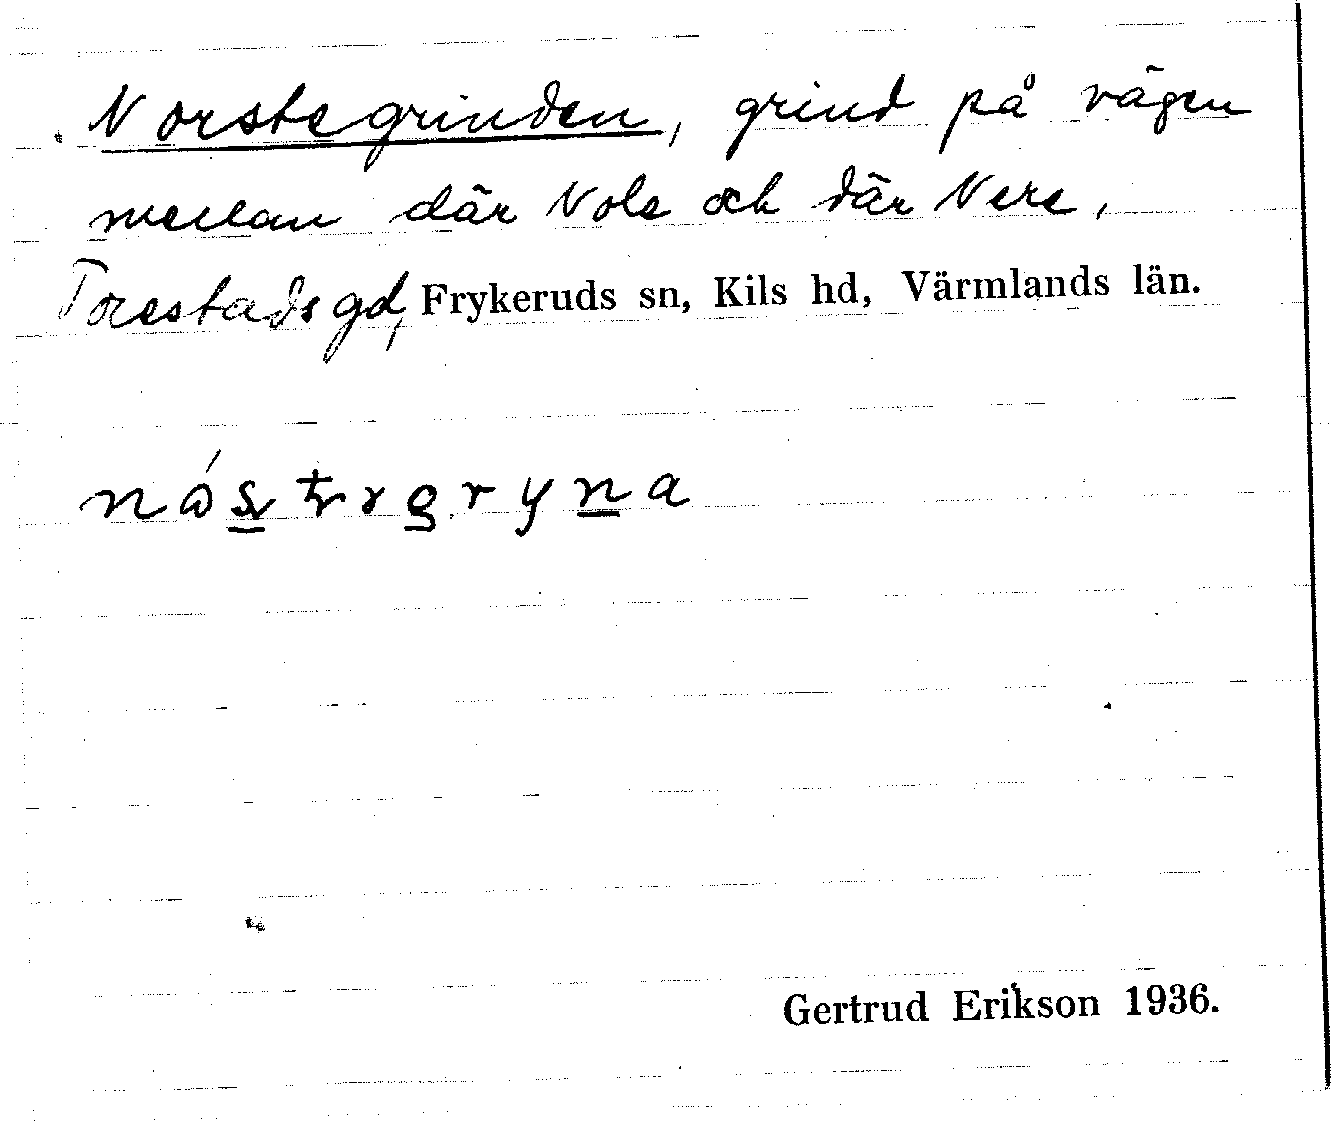 Norstegrinden, grind på vägen
mellan där Nole och där Nere,
Torestads gd, Frykeruds sn, Kils hd, Värmlands län.
Gertrud Erikson 1936.